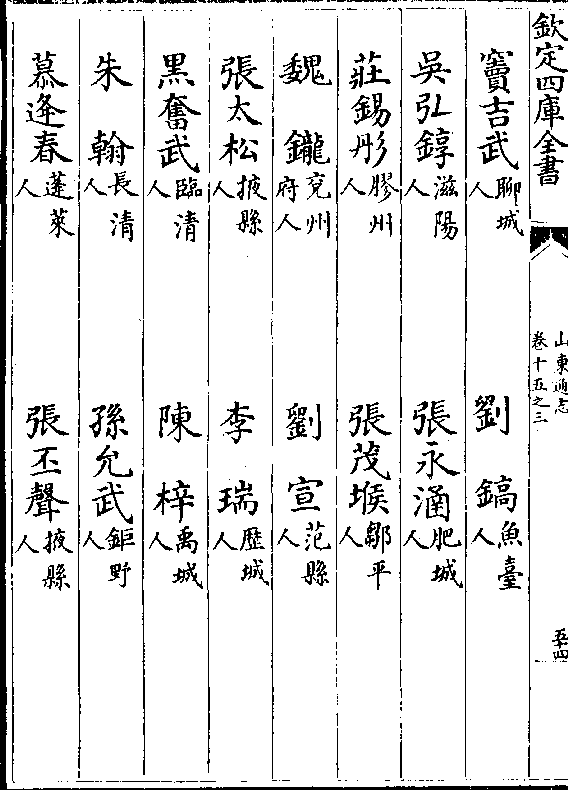 欽定四庫全書
山東通志
卷十五之三
五十四
竇吉武聊城人 劉鎬魚臺人
吳弘錞滋陽人 張永涵肥城人
莊錫彤膠州人 張茂堠鄒平人
魏鑨兖州府人 劉宣范縣人
張太松掖縣人 李瑞歷城人
黑奮武臨清人 陳梓禹城人
朱翰長清人 孫允武鉅野人
慕逄春蓬萊人 張丕聲掖縣人